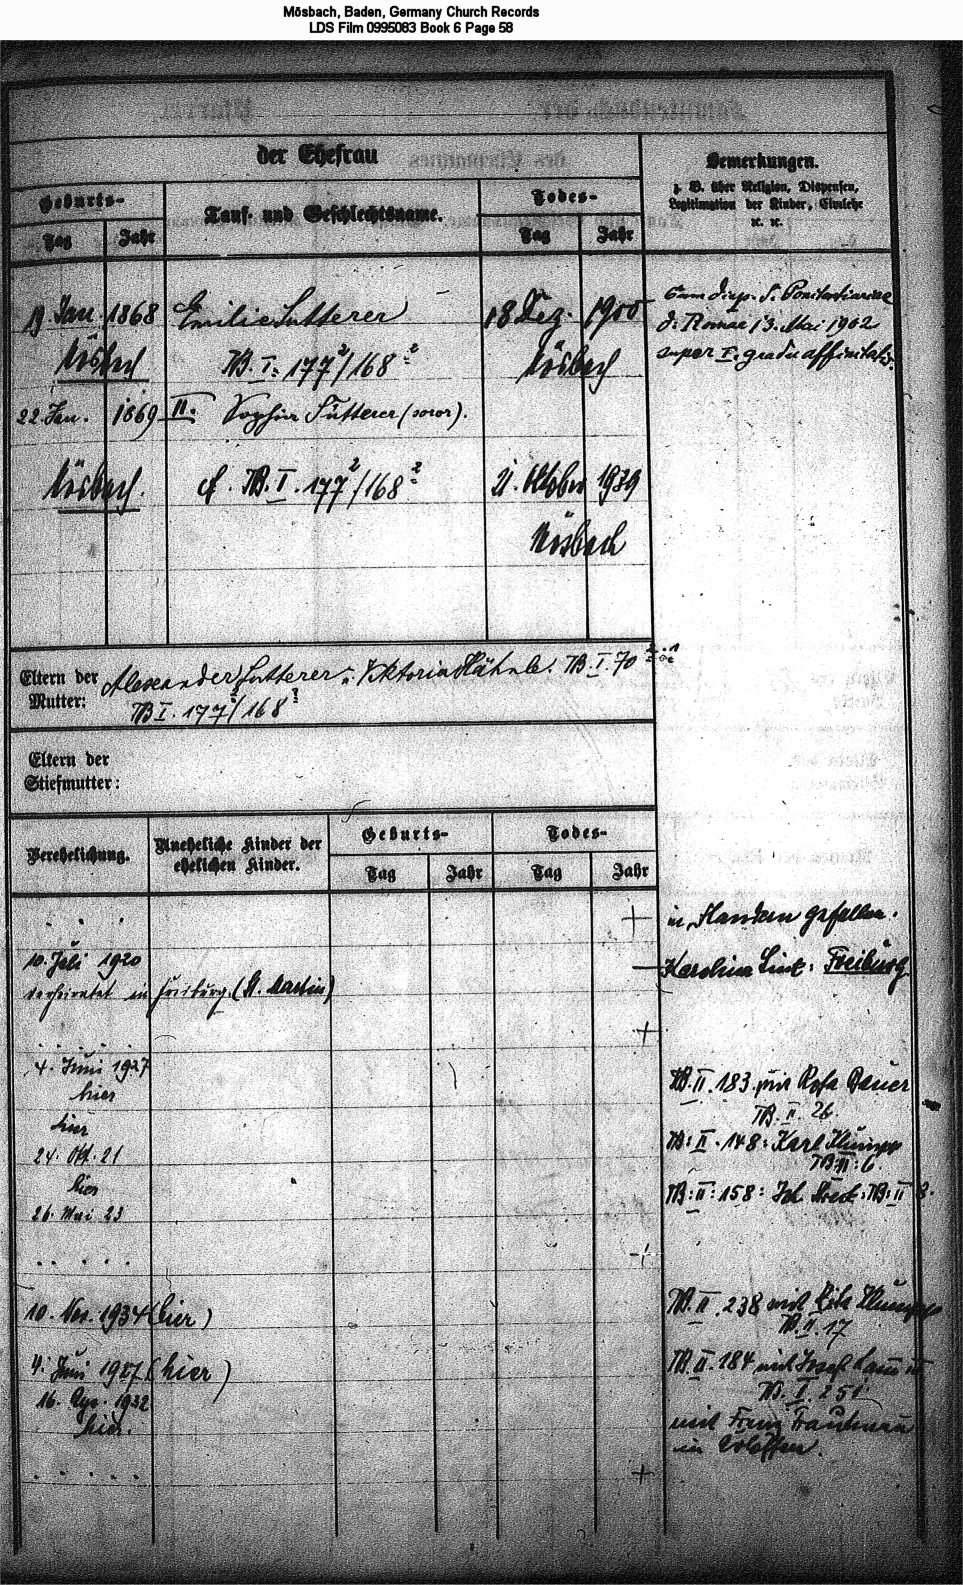 Mösbach, Baden, Germany Church Records
LDS Film 0995083 Book 6 Page 58
der Ehefrau
Bemerkungen.
z. B. über Religion, Dispensen,
Legitimation der Kinder, Civilehe
ꝛc. ꝛc.
Geburts-
Tauf- und Geschlechtsname.
Todes-
Tag Jahr
Tag Jahr
19 Jan. 1868 Emilie Sutterer 18 Dez. 1900
Cum disp. S. Poenitentiariae
d. Romae 13. Mai 1902
super I. gradu affinitatis.
Mösbach FB. I. 177²/168² Mösbach
22. Jan. 1869 II. Sophie Sutterer (soror).
Mösbach. cf. FB. I. 177²/168² 21. Oktober 1939
Mösbach
Eltern der
Mutter:
Alexander Sutterer u. Viktoria Hähnle. FB. I. 70
FB I. 177/168
Eltern der
Stiefmutter:
Verehelichung.
Uneheliche Kinder der
ehelichen Kinder.
Geburts-
Todes-
Tag Jahr Tag Jahr
+ in Flandern gefallen.
10. Juli 1920
verheiratet in Freiburg. (St. Martin)
Karolina Link: Freiburg
+
4. Juni 1927
hier
FB. II. 183. mit Rosa Bauer
FB. II. 26.
hier
24. Okt. 21
FB: II. 148: Karl Klumpp
FB: II: 6.
hier
26. Mai 23
FB: II: 158: FB: II 8.
+
10. Nov. 1934 (hier)
FB. II. 238 mit Klumpp
FB. II. 17
4. Juni 1927 (hier)
FB. II. 184 mit Josef
FB. I. 251
16. 1932
hier.
mit Franz
in
+